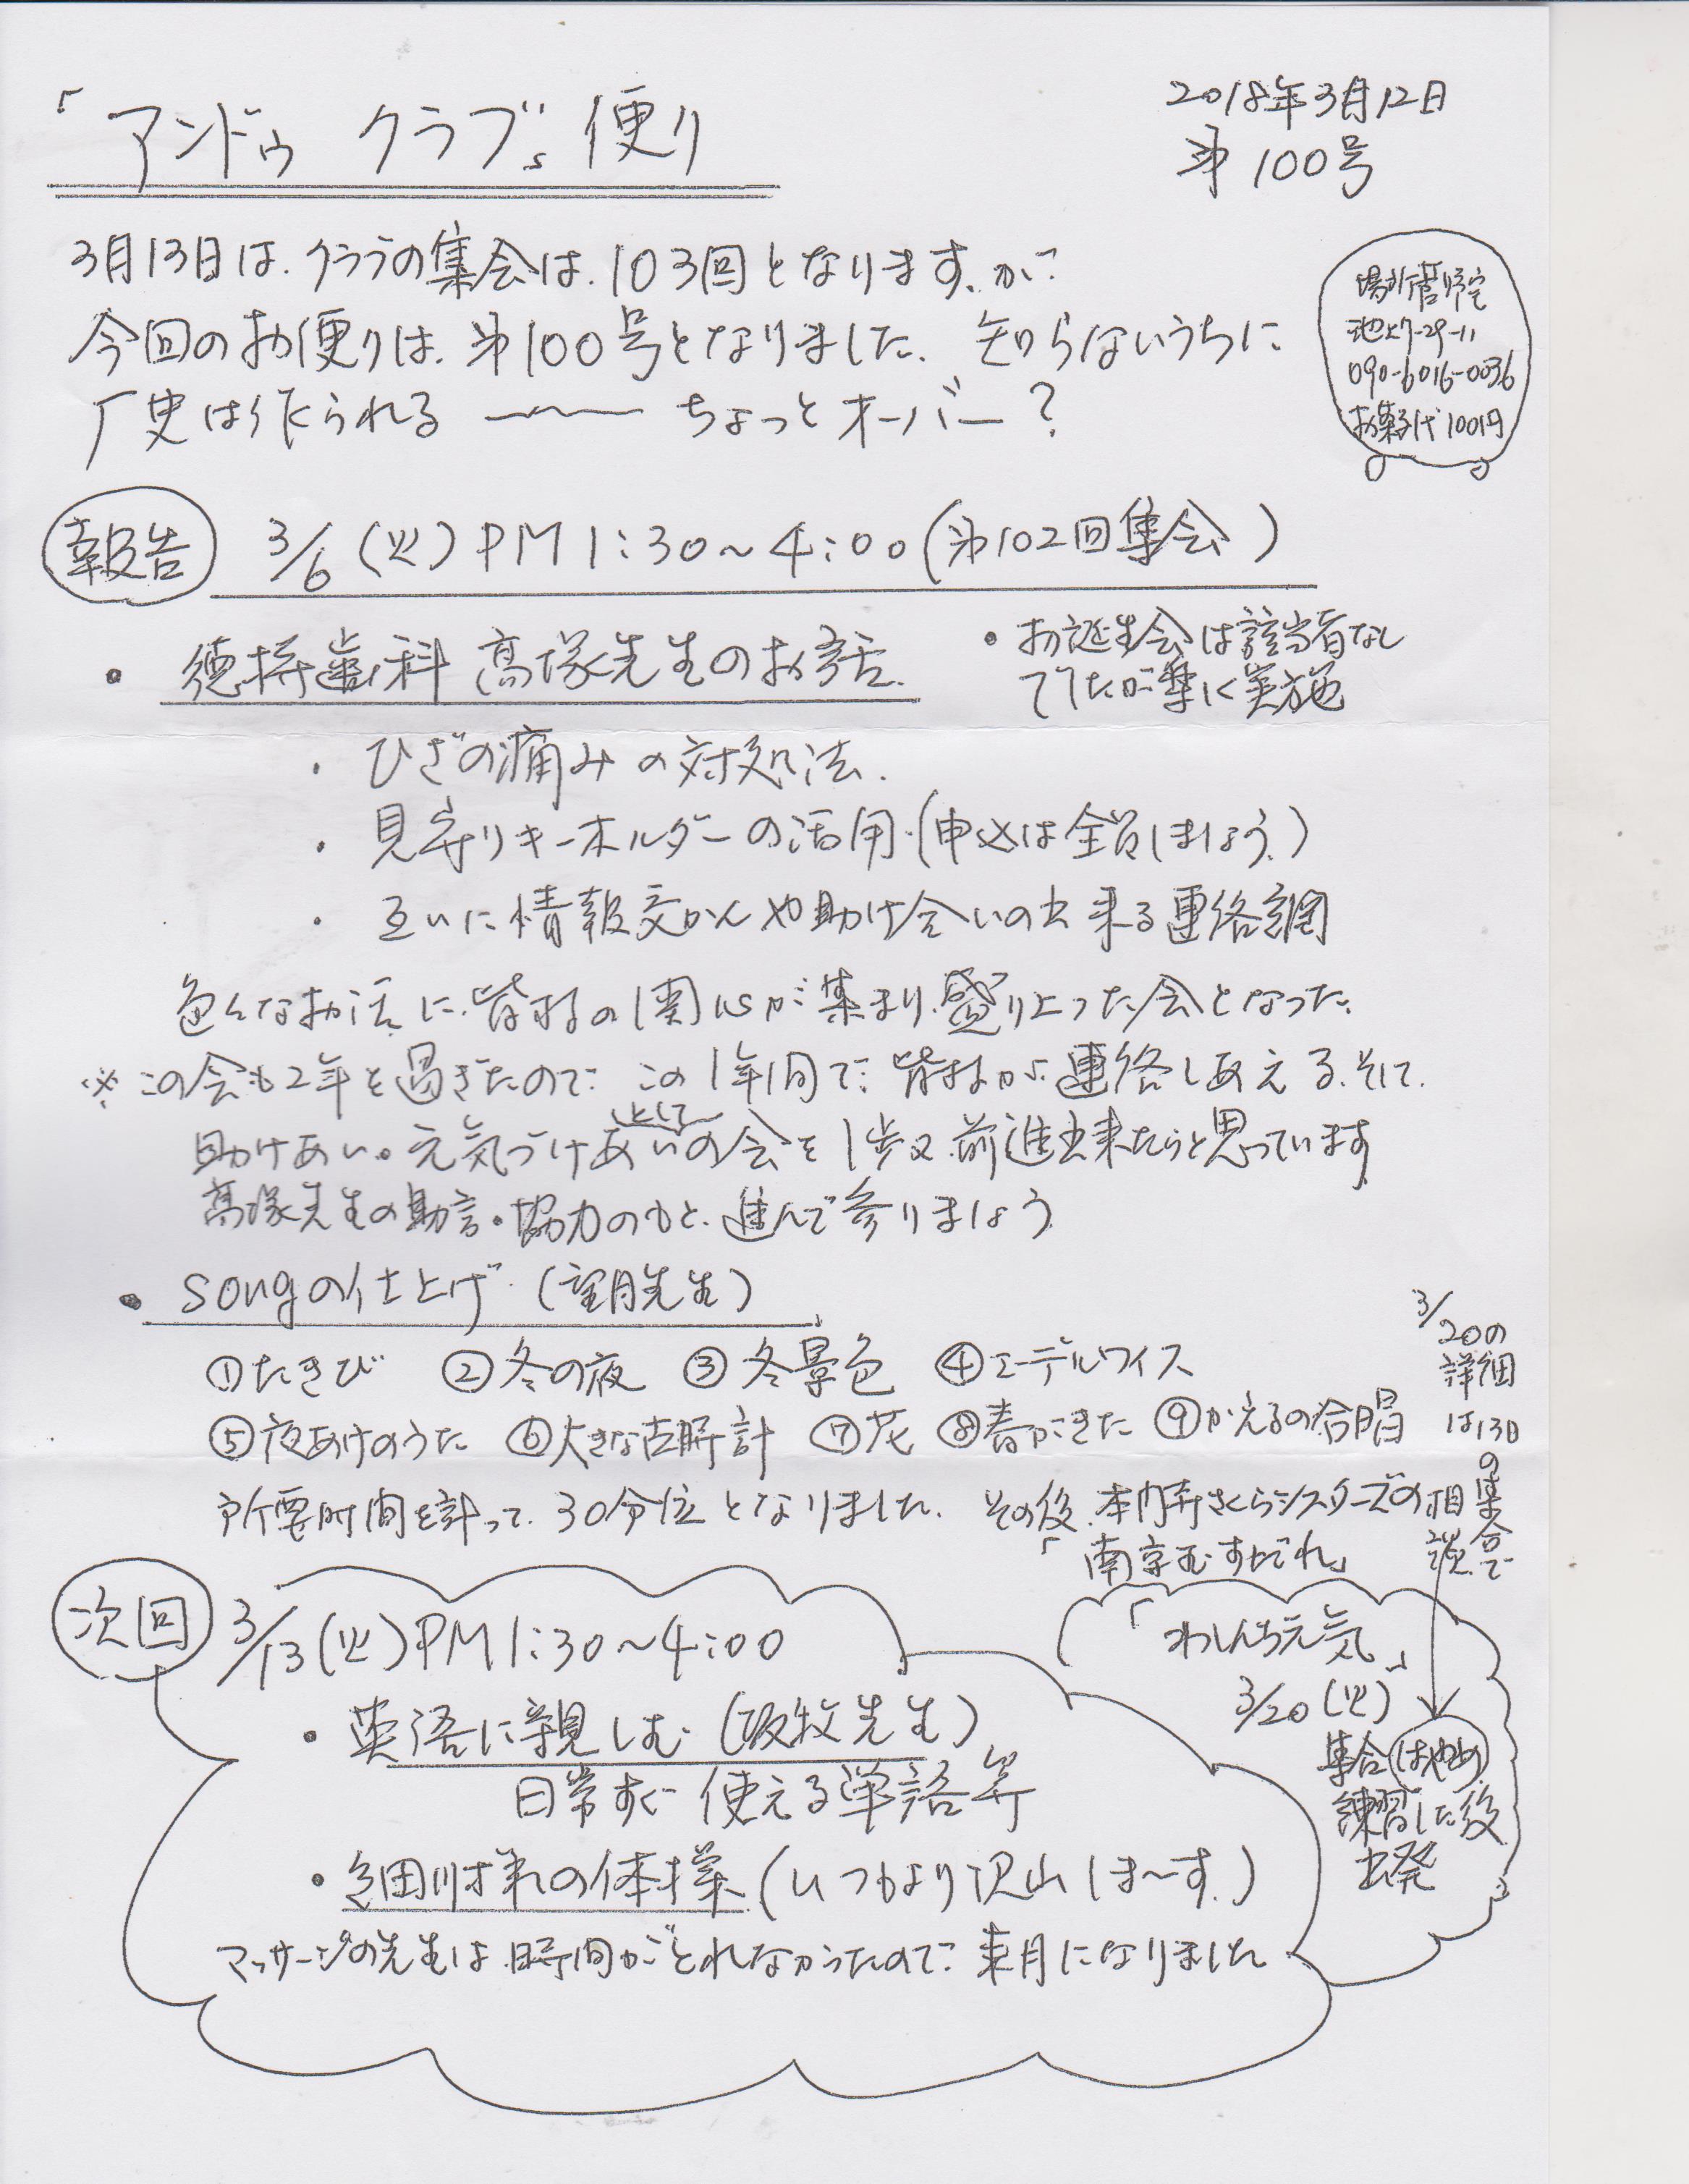 「アンドゥ クラブ」便り
2018年3月12日
第100号
3月13日は、クラブの集会は、103回となります、が、
今回のお便りは、第100号となりました、知らないうちに
厂史は作られる 〜〜〜 ちょっとオーバー？
場所菅野宅
池上7-29-11
090-6016-0036
お菓子代100円
報告 3/6(火)PM1:30〜4:00(第102回集会)
・徳持歯科 高塚先生のお話
・お誕生会は該当者なし
でしたが楽しく実施
・ひざの痛みの対処法.
・見守りキーホルダーの活用.(申込は全員しましょう.)
・互いに情報交かんや助け合いの出来る連絡網
色んなお話に、皆様の関心が集まり、盛り上った会となった.
※この会も2年を過ぎたので、この1年間で、皆様が連絡しあえる、そして.
助けあい。元気づけあいの会として1歩又前進出来たらと思っています
高塚先生の助言・協力のもと、進んで参りましょう
・songの仕上げ (望月先生)
①たきび ②冬の夜 ③冬景色 ④エーデルワイス
⑤夜あけのうた ⑥大きな古時計 ⑦花 ⑧春がきた ⑨かえるの合唱
所要時間を計って、30分位となりました. その後、本門寺さくらシスターズの相談
「南京玉すだれ」
3/20の
詳細
は13日
の集合で
次回 3/13(火)PM1:30〜4:00
・英語に親しむ (坂牧先生)
日常すぐ使える単語等
・細川様の体操 (いつもより沢山しま〜す.)
マッサージの先生は時間がとれなかったので、来月になりました
「わしんち元気」
3/20(火)
集合はやめ
練習した後
出発